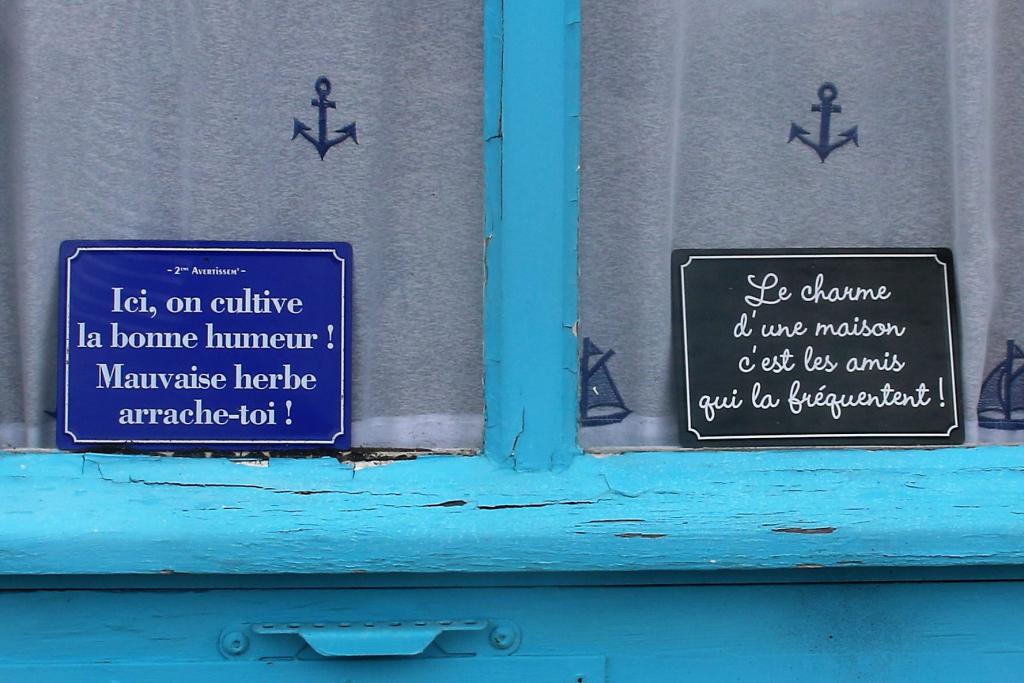 - 2ème Avertissemt -
Ici, on cultive
la bonne humeur !
Mauvaise herbe
arrache-toi !
Le charme
d'une maison
c'est les amis
qui la fréquentent !